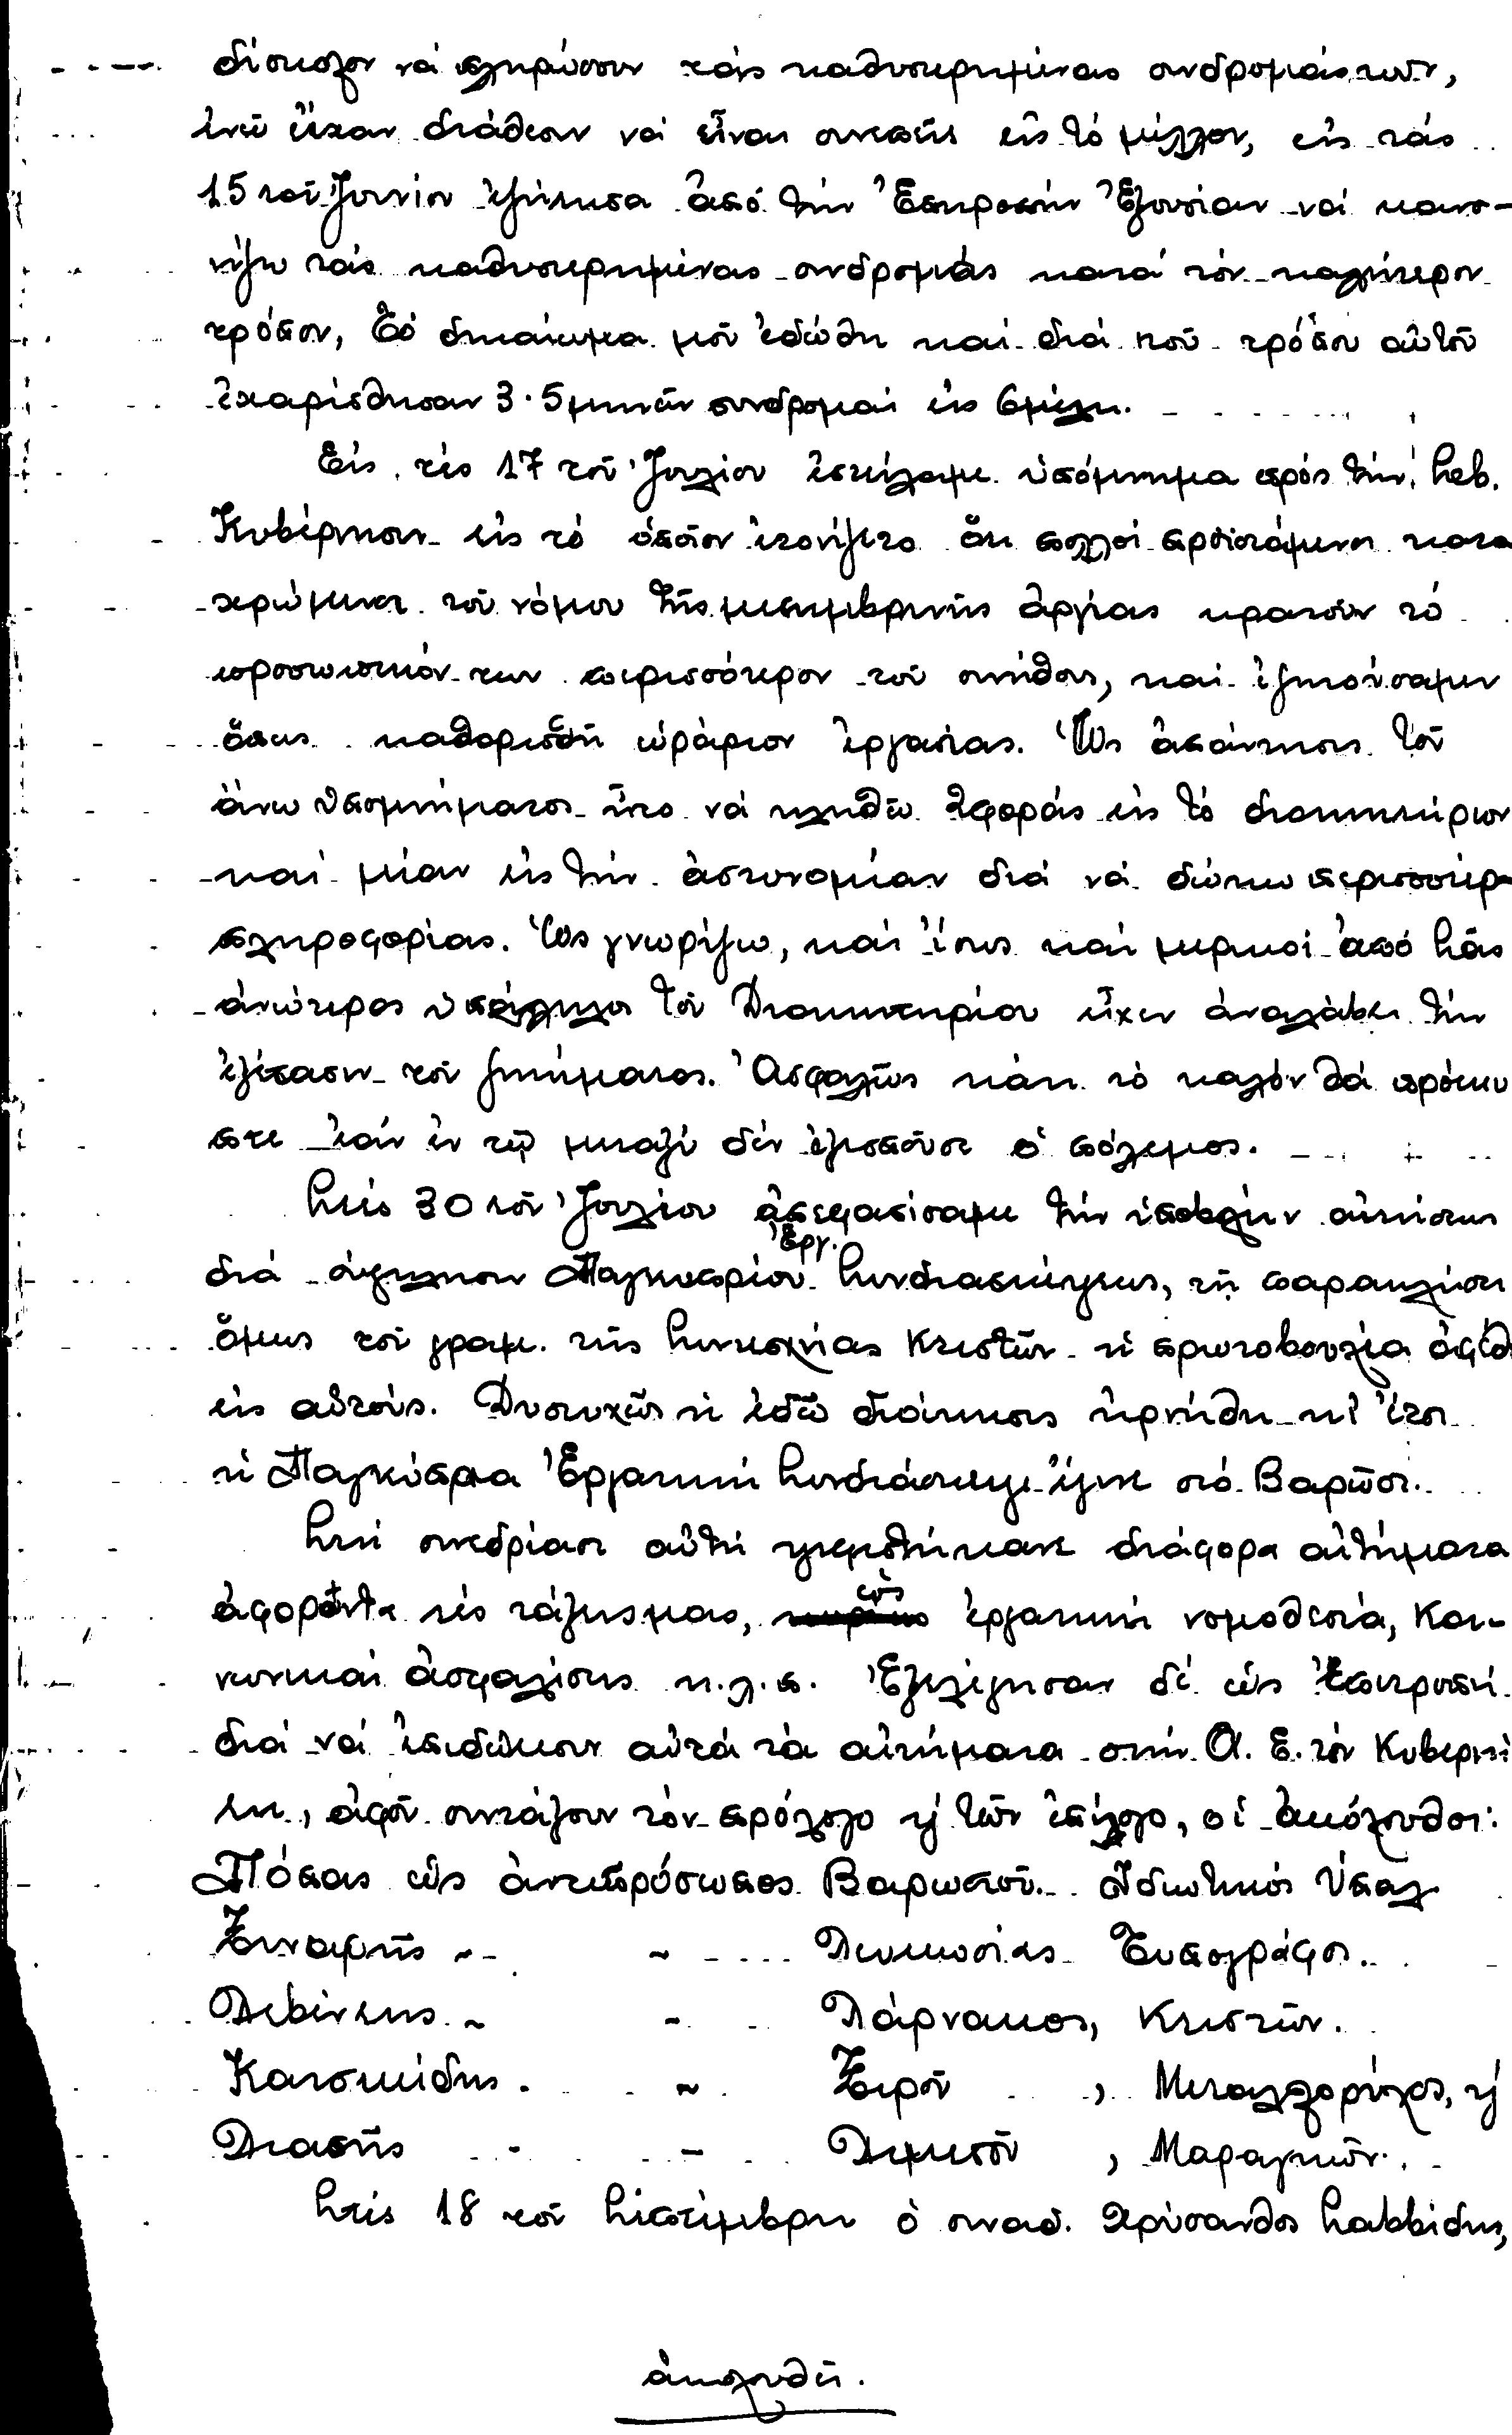 δύσκολον νά πληρώσουν τάς καθυστερημένας συνδρομάς των,
ἐνῶ εἶχαν διάθεσιν νά εἶναι συνεπεῖς εἰς τό μέλλον, εἰς τάς
15 τοῦ Ἰουνίου ἐζήτησα ἀπό τήν Ἐπιτροπήν Ἐξουσίαν νά κανο-
νίζω τάς καθυστερημένας συνδρομάς κατά τόν καλήτερον
τρόπον, Τό δικαίωμα μοῦ ἐδώθη καί διά τοῦ τρόπου αὐτοῦ
ἐχαρίσθησαν 3·5 μηνῶν συνδρομαί εἰς 6 μέλη.
Εἰς τές 17 τοῦ Ἰουλίου ἐστείλαμε ὑπόμνημα πρός τήν Σεβ.
Κυβέρνησιν εἰς τό ὁποῖον ἐτονίζετο ὅτι πολλοί προϊστάμενοι κατα
χρώμενοι τοῦ νόμου τῆς μεσημβρινῆς ἀργίας κρατοῦν τό
προσωπικόν των περισσότερον τοῦ συνήθους, καί ἐζητούσαμεν
ὅπως καθορισθῆ ὡράριον ἐργασίας. Ὡς ἀπάντησις τοῦ
ἄνω ὑπομνήματος ἦτο νά κληθῶ 2 φοράς εἰς τό διοικητήριον
καί μίαν εἰς τήν ἀστυνομίαν διά νά δώσω περισσοτέρ
πληροφορίας. Ὡς γνωρίζω, καί ἴσως καί μερικοί ἀπό σᾶς
ἀνώτερος ὑπάλληλος τοῦ Διοικητηρίου εἶχεν ἀναλάβει τήν
ἐξέτασιν τοῦ ζητήματος. Ἀσφαλῶς κάτι τό καλόν θά πρόκυ
πτε ἐάν ἐν τῷ μεταξύ δέν ἐξεσποῦσε ὁ πόλεμος.
Στές 30 τοῦ Ἰουλίου ἀπεφασίσαμε τήν ὑποβολήν αἰτήσεως
διά σύγκλησιν Παγκυπρίου Ἐργ. Συνδιασκέψεως, τῇ παρακλήσει
ὅμως τοῦ γραμ. τῆς Συντεχνίας Κτιστῶν ἡ πρωτοβουλία ἀφέθ
εἰς αὐτούς. Δυστυχῶς ἡ ἐδῶ διοίκησις ἠρνήθη κι' ἔτσι
ἡ Παγκύπρια Ἐργατική Συνδιάσκεψι ἔγινε στό Βαρῶσι.
Στή συνεδρίασι αὐτή ψηφιστήκανε διάφορα αἰτήματα
ἀφορῶντα τές τάξεις μας, ὡς ἐργατική νομοθεσία, Κοι-
νωνικαί ἀσφαλίσεις κ.λ.π. Ἐξελέγησαν δέ ὡς Ἐπιτροπή
διά νά ἐπιδώσουν αὐτά τά αἰτήματα στήν Α. Ε. τόν Κυβερνή
τη, ἀφοῦ συντάξουν τόν πρόλογο ἤ τόν ἐπίλογο, οἱ ἀκόλουθοι:
Πόπας ὡς ἀντιπρόσωπος Βαρωσιοῦ. Ἰδιωτικός Ὑπαλ
Ξιναρῆς ~ ~ Λευκωσίας Τυπογράφοι.
Λεβέντης ~ ~ Λάρνακος, Κτιστῶν.
Κατσικίδης ~ Ξεροῦ , Μεταλλορύχος, ἤ
Λιασῆς ~ Λεμεσοῦ , Μαραγκῶν.
Στίς 18 τοῦ Σεπτέμβρη ὁ συναδ. Χρύσανθος Σαββίδης,
ἀκολουθεῖ.